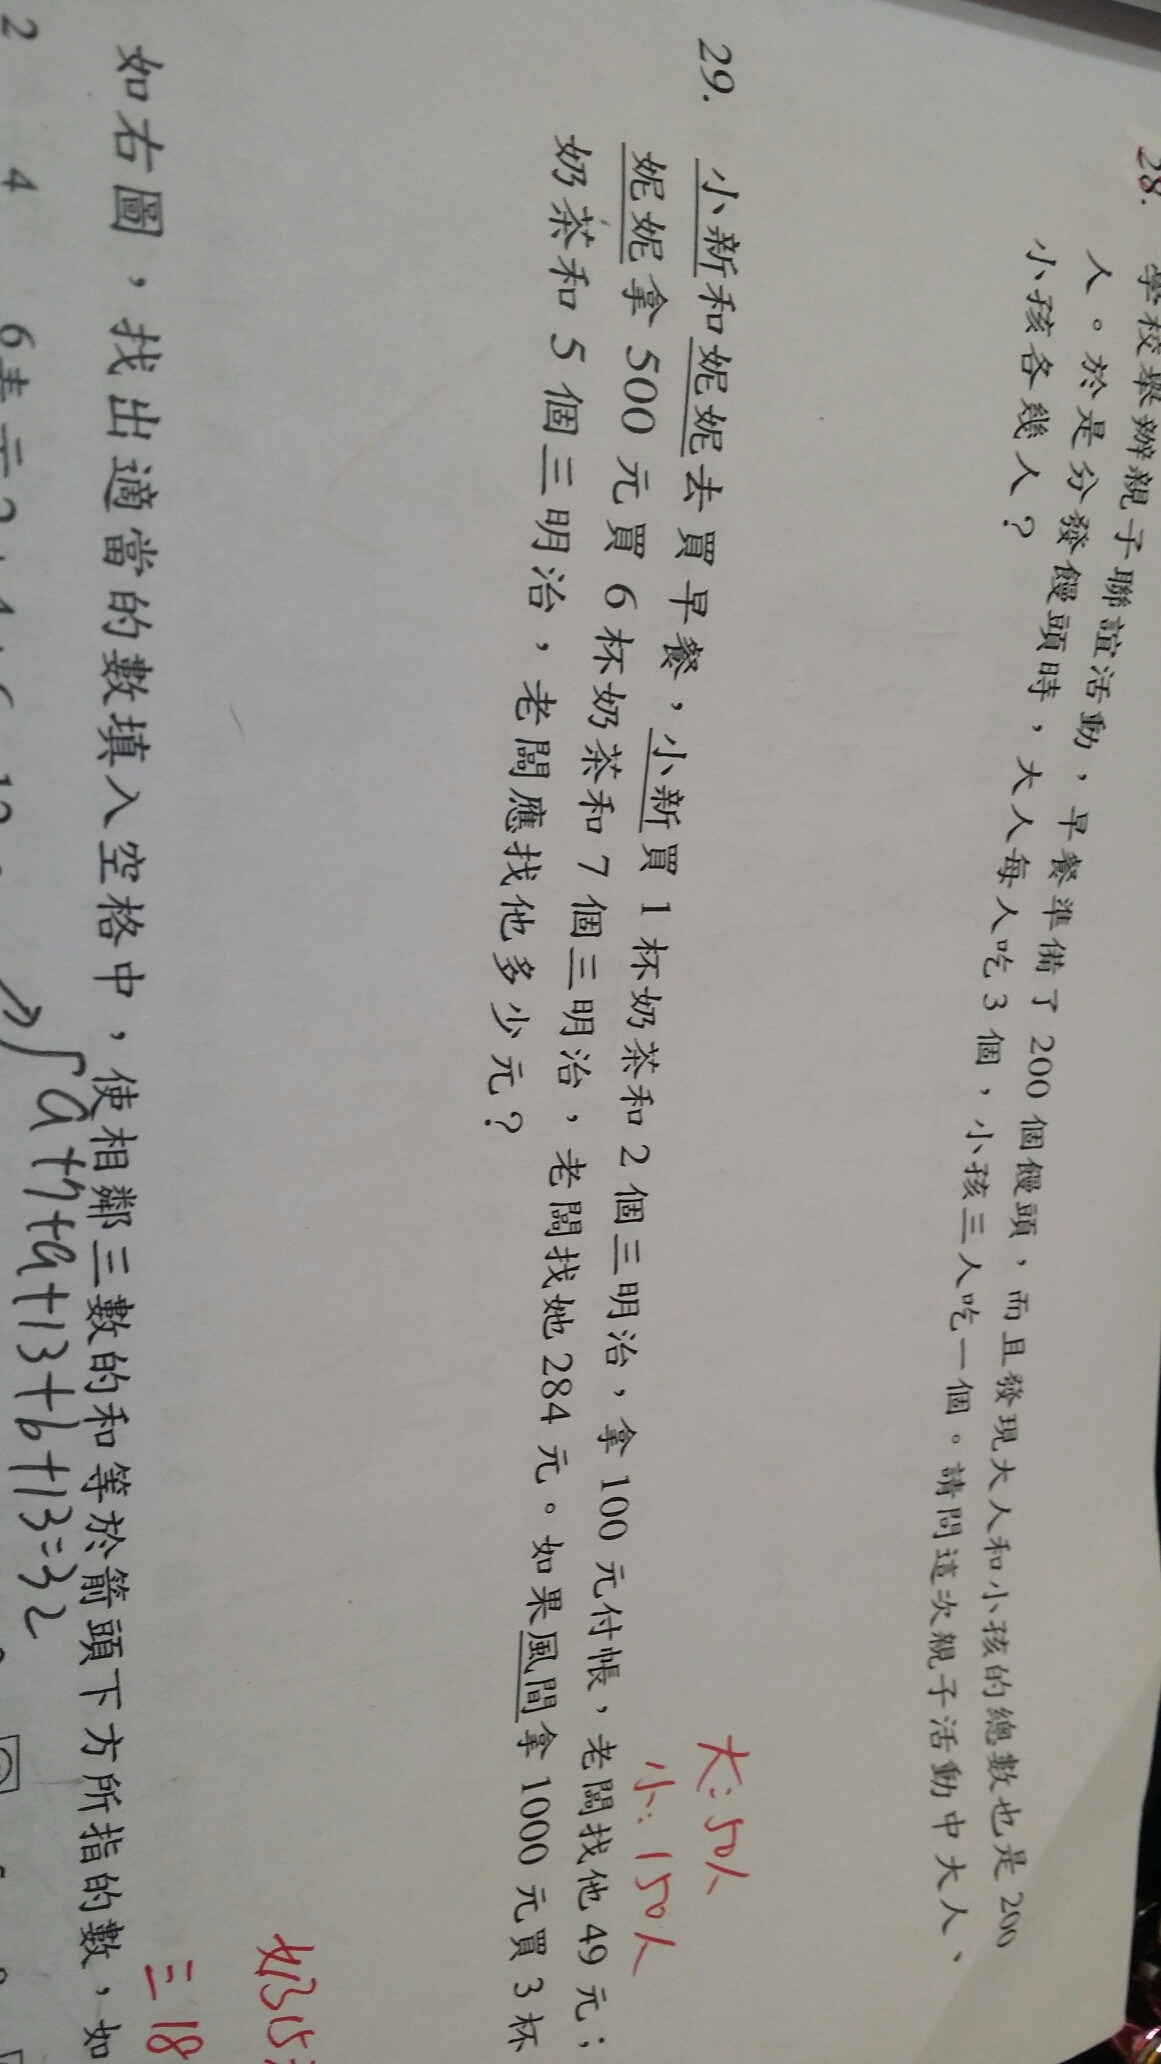 28. 學校舉辦親子聯誼活動，早餐準備了 200 個饅頭，而且發現大人和小孩的總數也是 200
人。於是分發饅頭時，大人每人吃 3 個，小孩三人吃一個。請問這次親子活動中大人、
小孩各幾人？
大：50人
小：150人
29. 小新和妮妮去買早餐，小新買 1 杯奶茶和 2 個三明治，拿 100 元付帳，老闆找他 49 元；
妮妮拿 500 元買 6 杯奶茶和 7 個三明治，老闆找她 284 元。如果風間拿 1000 元買 3 杯
奶茶和 5 個三明治，老闆應找他多少元？
奶15
三 18
如右圖，找出適當的數填入空格中，使相鄰三數的和等於箭頭下方所指的數，如
a+7+a+13+b+13=32
2 4 6